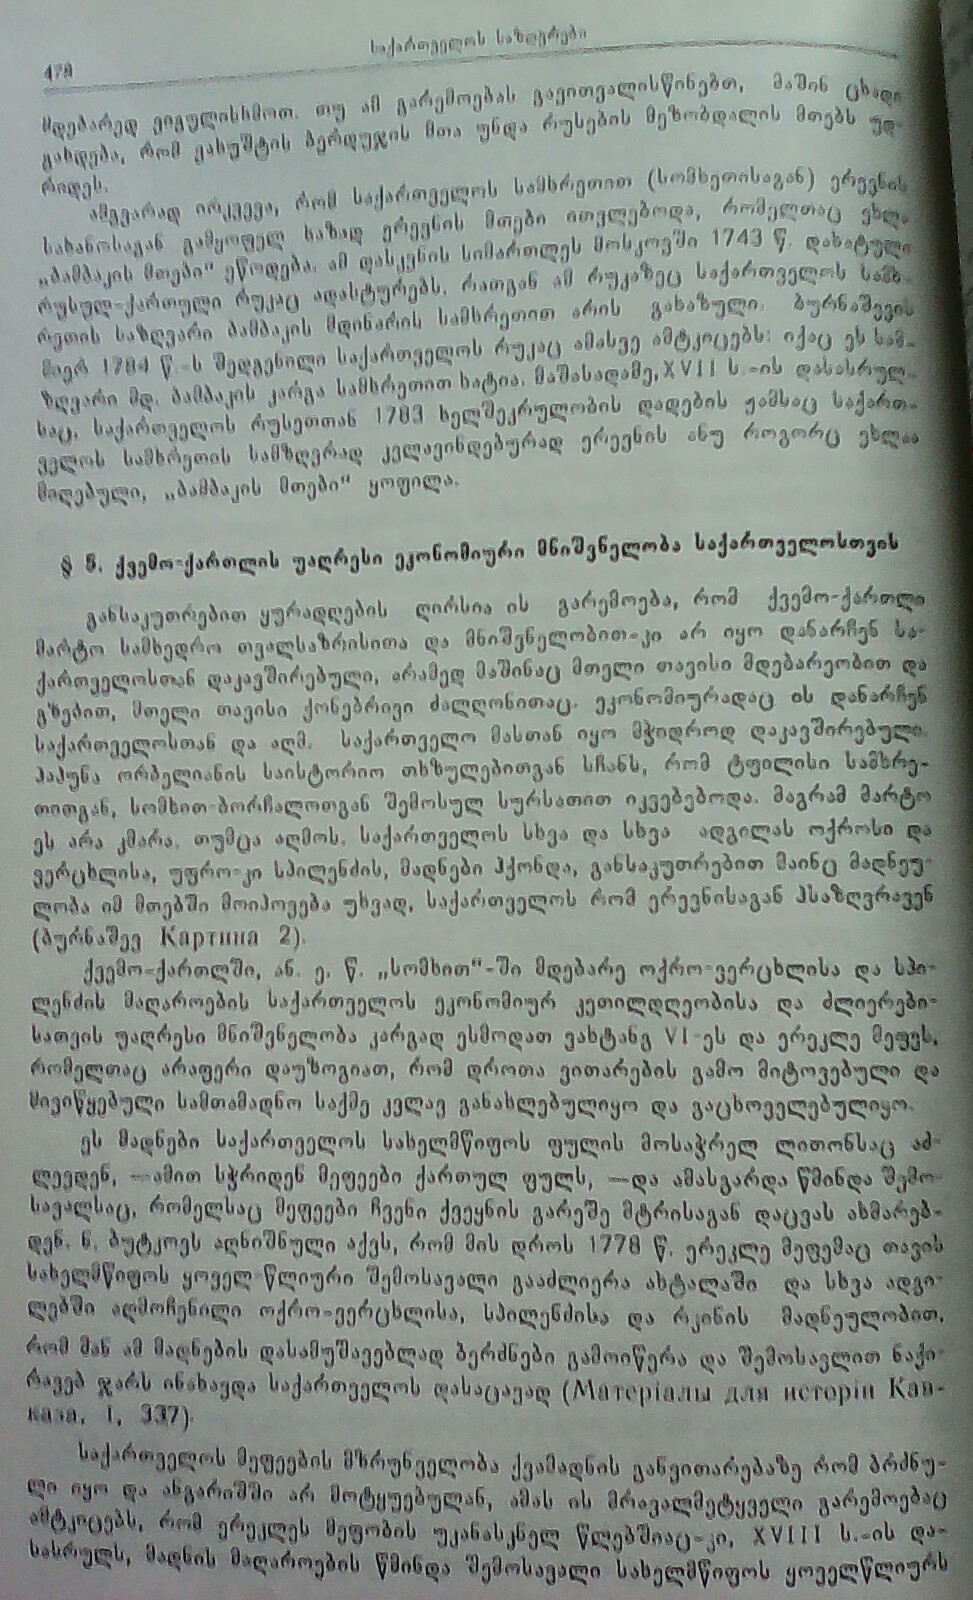 საქართველოს საზღვრები
478
მდებარედ ვიგულისხმოთ. თუ ამ გარემოებას გავითვალისწინებთ, მაშინ ცხადი
გახდება, რომ ვახუშტის ბერდუჯის მთა უნდა რუსების მეზობდალის მთებს უდ-
რიდეს.
ამგვარად ირკვევა, რომ საქართველოს სამხრეთით (სომხეთისაგან) ერევნის
სახანოსაგან გამყოფელ ხაზად ერევნის მთები ითვლებოდა, რომელთაც ეხლა
„ბამბაკის მთები“ ეწოდება. ამ დასკვნის სიმართლეს მოსკოვში 1743 წ. დახატული
რუსულ-ქართული რუკაც ადასტურებს, რათგან ამ რუკაზეც საქართველოს სამხ-
რეთის საზღვარი ბამბაკის მდინარის სამხრეთით არის გახაზული. ბურნაშევის
მიერ 1784 წ.-ს შედგენილი საქართველოს რუკაც ამასვე ამტკიცებს: იქაც ეს სამ-
ზღვარი მდ. ბამბაკის კარგა სამხრეთით ხატია. მაშასადამე, XVII ს.-ის დასასრულ-
საც, საქართველოს რუსეთთან 1783 ხელშეკრულობის დადების ჟამსაც საქართ-
ველოს სამხრეთის სამზღვრად კვლავინდებურად ერევნის ანუ როგორც ეხლაა
მიღებული, „ბამბაკის მთები“ ყოფილა.
§ 5. ქვემო-ქართლის უაღრესი ეკონომიური მნიშვნელობა საქართველოსთვის
განსაკუთრებით ყურადღების ღირსია ის გარემოება, რომ ქვემო-ქართლი
მარტო სამხედრო თვალსაზრისითა და მნიშვნელობით-კი არ იყო დანარჩენ სა-
ქართველოსთან დაკავშირებული, არამედ მაშინაც მთელი თავისი მდებარეობით და
გზებით, მთელი თავისი ქონებრივი ძალღონითაც. ეკონომიურადაც ის დანარჩენ
საქართველოსთან და აღმ. საქართველო მასთან იყო მჭიდროდ დაკავშირებული.
პაპუნა ორბელიანის საისტორიო თხზულებითგან სჩანს, რომ ტფილისი სამხრე-
თითგან, სომხით-ბორჩალოთგან შემოსულ სურსათით იკვებებოდა. მაგრამ მარტო
ეს არა კმარა. თუმცა აღმოს. საქართველოს სხვა და სხვა ადგილას ოქროსი და
ვერცხლისა, უფრო-კი სპილენძის, მადნები ჰქონდა, განსაკუთრებით მაინც მადნეუ-
ლობა იმ მთებში მოიპოვება უხვად, საქართველოს რომ ერევნისაგან ჰსაზღვრავენ
(ბურნაშევ Картина 2).
ქვემო-ქართლში, ან. ე. წ. „სომხით“-ში მდებარე ოქრო-ვერცხლისა და სპი-
ლენძის მაღაროების საქართველოს ეკონომიურ კეთილდღეობისა და ძლიერები-
სათვის უაღრესი მნიშვნელობა კარგად ესმოდათ ვახტანგ VI-ეს და ერეკლე მეფეს,
რომელთაც არაფერი დაუზოგიათ, რომ დროთა ვითარების გამო მიტოვებული და
მივიწყებული სამთამადნო საქმე კვლავ განახლებულიყო და გაცხოველებულიყო.
ეს მადნები საქართველოს სახელმწიფოს ფულის მოსაჭრელ ლითონსაც აძ-
ლევდენ, —ამით სჭრიდენ მეფეები ქართულ ფულს, —და ამასგარდა წმინდა შემო-
სავალსაც, რომელსაც მეფეები ჩვენი ქვეყნის გარეშე მტრისაგან დაცვას ახმარებ-
დენ. ნ. ბუტკოვს აღნიშნული აქვს, რომ მის დროს 1778 წ. ერეკლე მეფემაც თავის
სახელმწიფოს ყოველ-წლიური შემოსავალი გააძლიერა ახტალაში და სხვა ადგი-
ლებში აღმოჩენილი ოქრო-ვერცხლისა, სპილენძისა და რკინის მადნეულობით,
რომ მან ამ მადნების დასამუშავებლად ბერძნები გამოიწერა და შემოსავლით ნაქი-
რავებ ჯარს ინახავდა საქართველოს დასაცავად (Матеріалы для исторіи Кав-
каза, I, 337).
საქართველოს მეფეების მზრუნველობა ქვამადნის განვითარებაზე რომ ბრძნუ-
ლი იყო და ანგარიშში არ მოტყუებულან, ამას ის მრავალმეტყველი გარემოებაც
ამტკიცებს, რომ ერეკლეს მეფობის უკანასკნელ წლებშიაც-კი, XVIII ს.-ის და-
სასრულს, მადნის მაღაროების წმინდა შემოსავალი სახელმწიფოს ყოველწლიურს